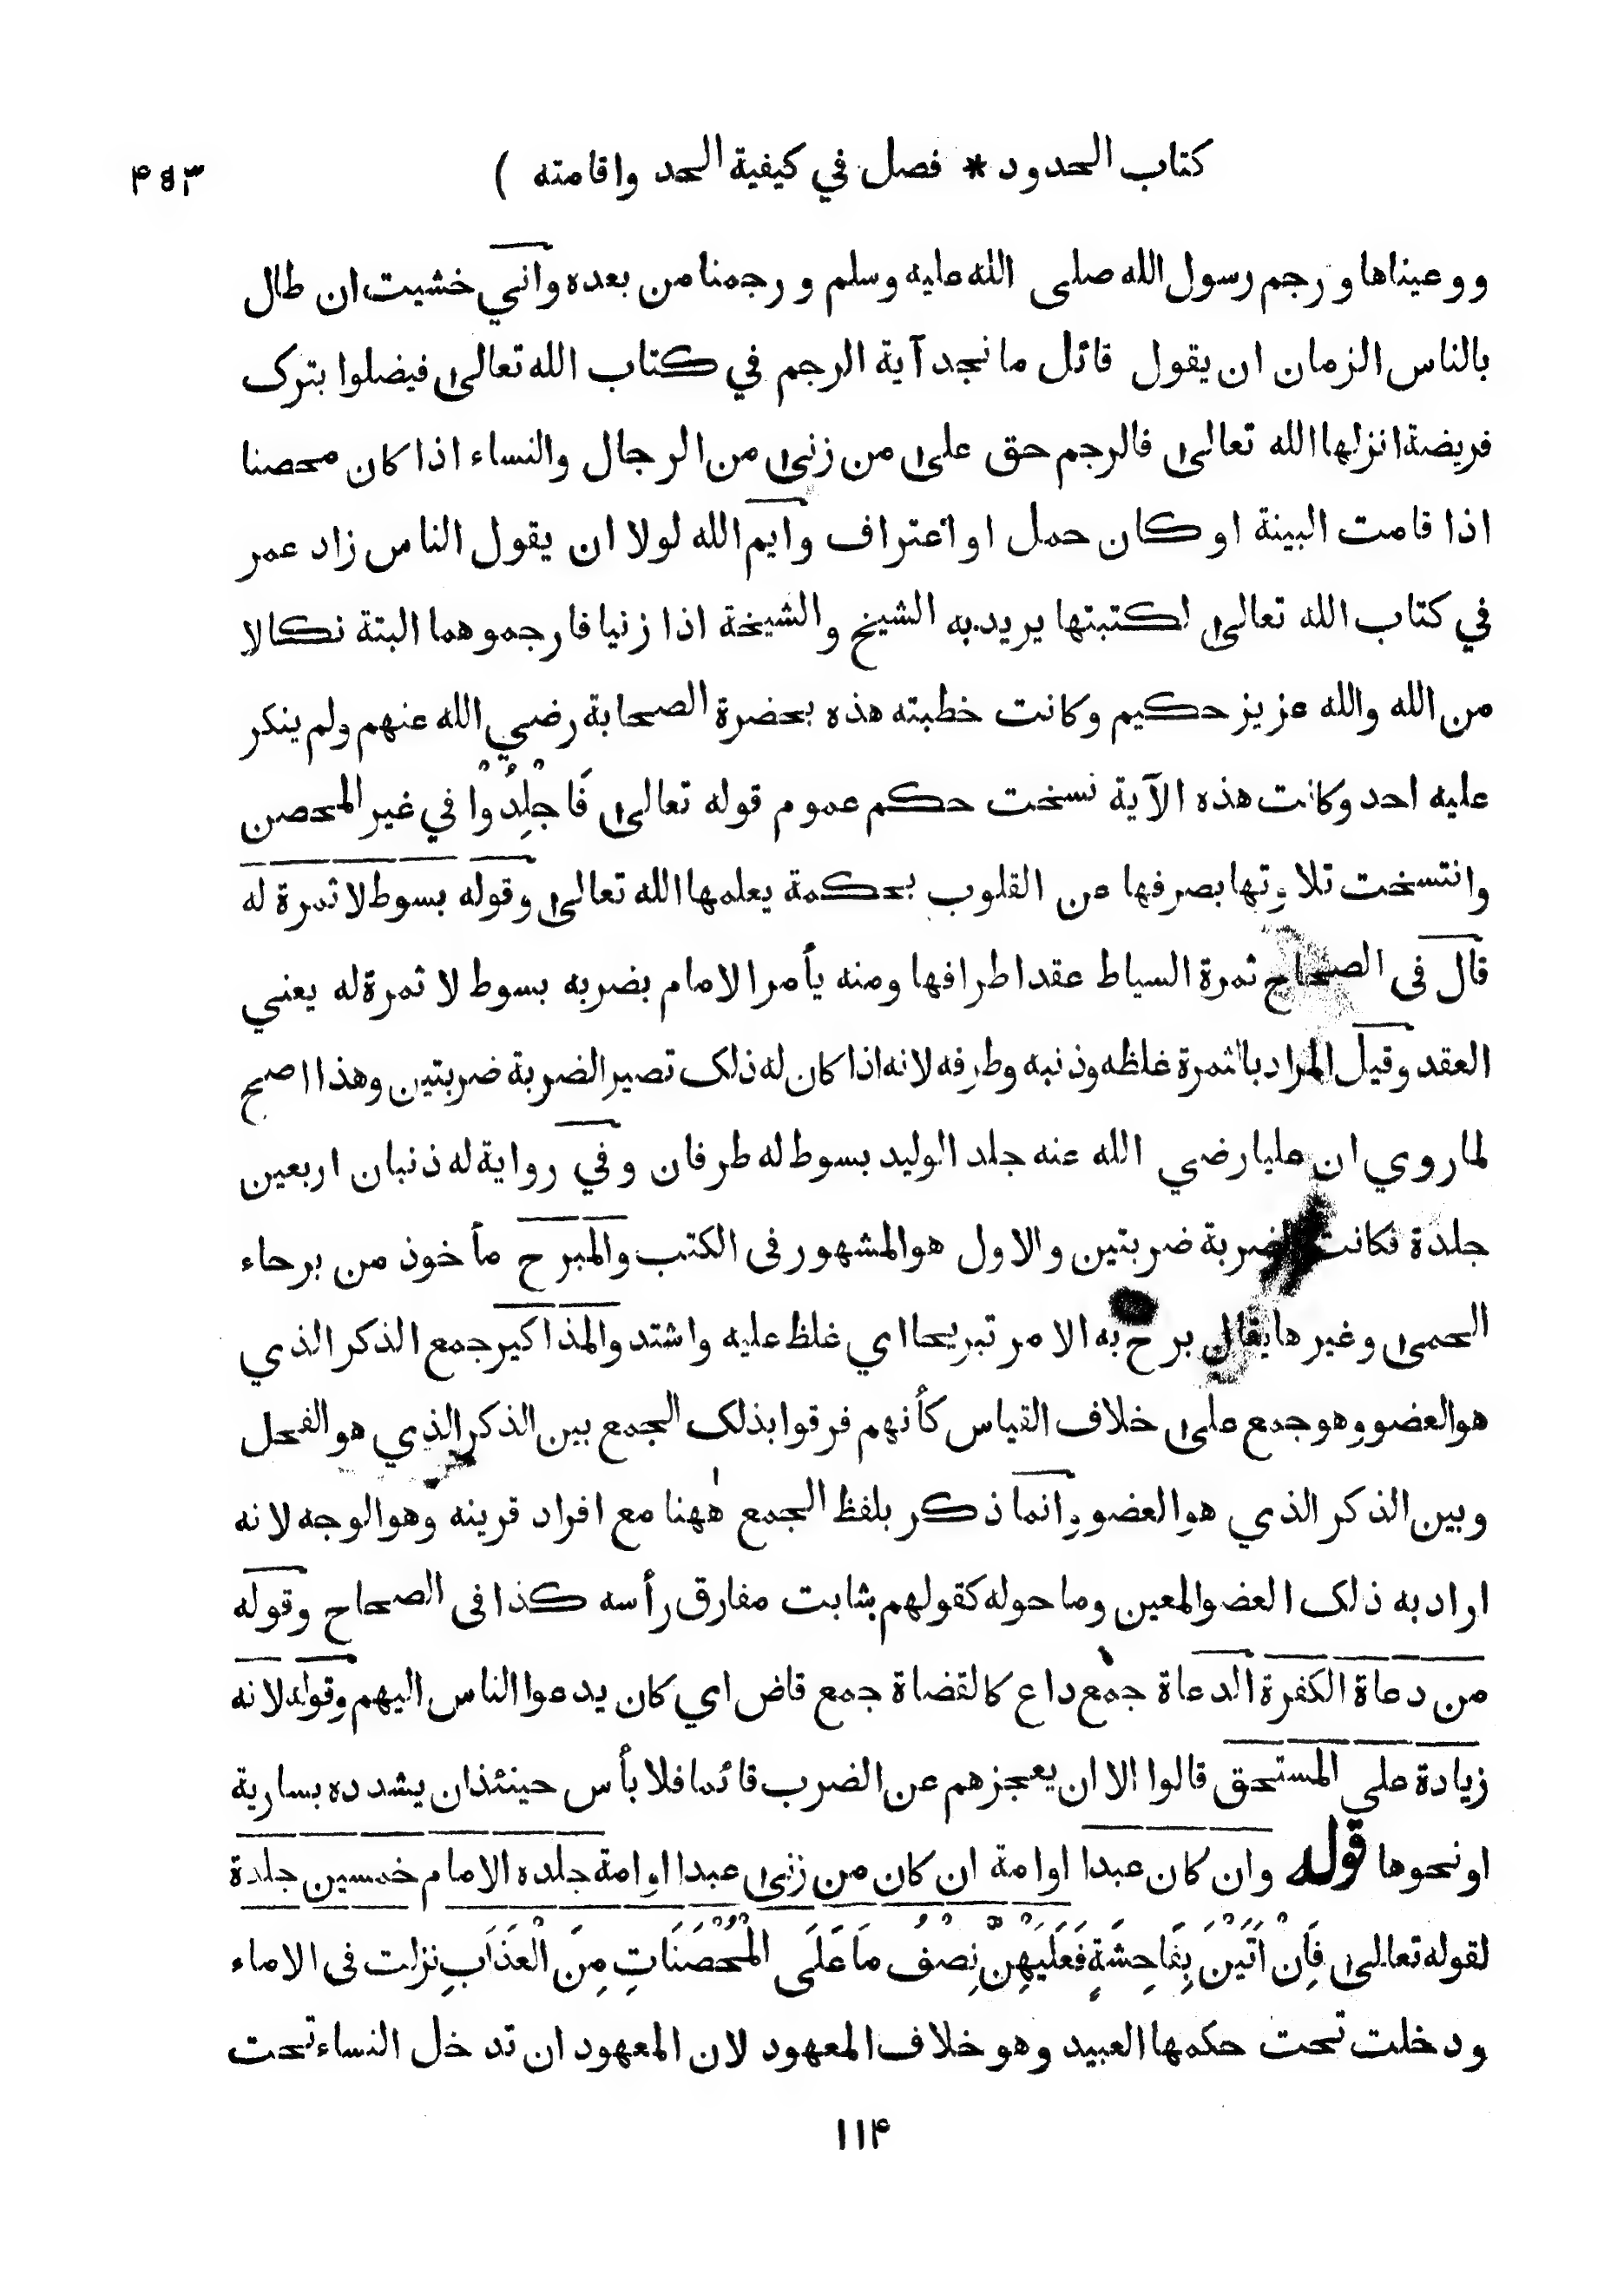 كتاب الحدود * فصل في كيفية الحد واقامته ) ۴۵۳
ووعيناها ورجم رسول الله صلى الله عليه وسلم ورجمنا من بعده واني خشيت ان طال
بالناس الزمان ان يقول قائل ما نجد آية الرجم في كتاب الله تعالى فيضلوا بترك
فريضة انزلها الله تعالى فالرجم حق على من زنى من الرجال والنساء اذا كان محصنا
اذا قامت البينة او كان حمل او اعتراف وايم الله لولا ان يقول الناس زاد عمر
في كتاب الله تعالى لكتبتها يريد به الشيخ والشيخة اذا زنيا فارجموهما البتة نكالا
من الله والله عزيز حكيم وكانت خطبته هذه بحضرة الصحابة رضي الله عنهم ولم ينكر
عليه احد وكانت هذه الآية نسخت حكم عموم قوله تعالى فَاجْلِدُوْا في غير المحصن
وانتسخت تلاوتها بصرفها عن القلوب بحكمة يعلمها الله تعالى وقوله بسوط لا ثمرة له
قال فى الصحاح ثمرة السياط عقد اطرافها ومنه يأمر الامام بضربه بسوط لا ثمرة له يعني
العقد وقيل المراد بالثمرة غلظه وذنبه وطرفه لانه اذا كان له ذلك تصير الضربة ضربتين وهذا اصح
لما روي ان عليا رضي الله عنه جلد الوليد بسوط له طرفان وفي رواية له ذنبان اربعين
جلدة فكانت الضربة ضربتين والاول هو المشهور فى الكتب والمبرح مأخوذ من برحاء
الحمى وغيرها يقال برح به الامر تبريحا اي غلظ عليه واشتد والمذاكير جمع الذكر الذي
هو العضو وهو جمع على خلاف القياس كأنهم فرقوا بذلك الجمع بين الذكر الذي هو الفحل
وبين الذكر الذي هو العضو وانما ذكر بلفظ الجمع ههنا مع افراد قرينه وهو الوجه لانه
اراد به ذلك العضو المعين وما حوله كقولهم شابت مفارق رأسه كذا فى الصحاح وقوله
من دعاة الكفرة الدعاة جمع داع كالقضاة جمع قاض اي كان يدعوا الناس اليهم وقوله لانه
زيادة على المستحق قالوا الا ان يعجزهم عن الضرب قائما فلا بأس حينئذ ان يشدده بسارية
او نحوها قوله وان كان عبدا او امة ان كان من زنى عبدا او امة جلده الامام خمسين جلدة
لقوله تعالى فَاِنْ اَتَيْنَ بِفَاحِشَةٍ فَعَلَيْهِنَّ نِصْفُ مَا عَلَى الْمُحْصَنَاتِ مِنَ الْعَذَابِ نزلت فى الاماء
ودخلت تحت حكمها العبيد وهو خلاف المعهود لان المعهود ان تدخل النساء تحت
۱۱۴